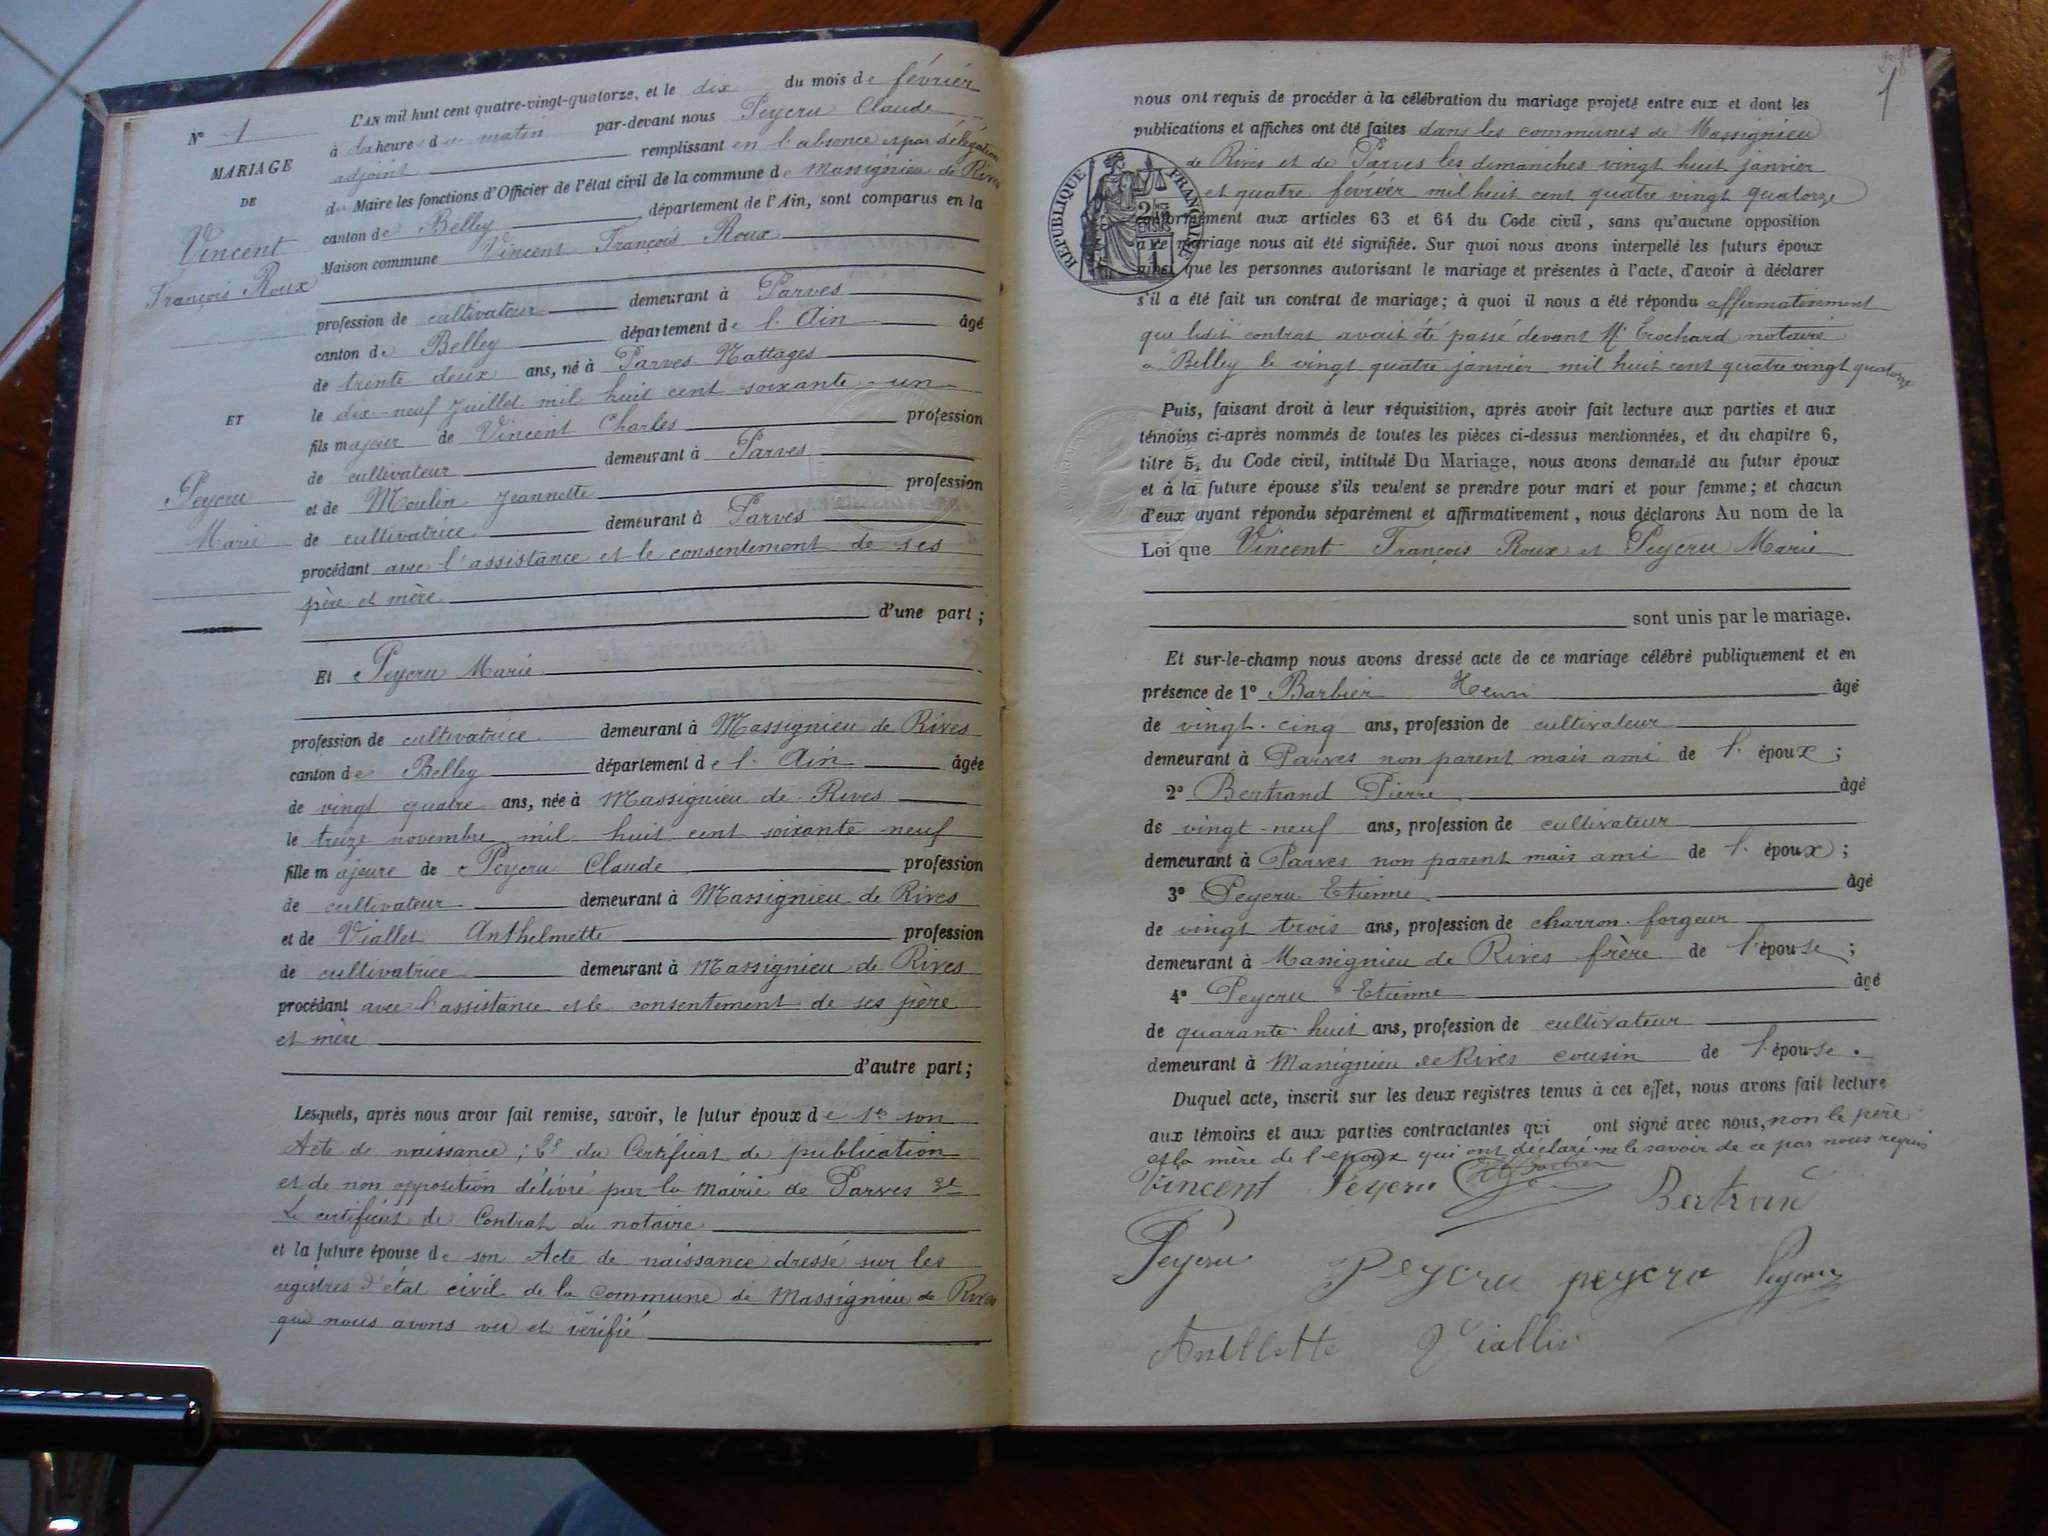 N° 1
MARIAGE
DE
Vincent
François Roux
ET
Peycru
Marie
L'AN mil huit cent quatre-vingt-quatorze, et le dix du mois de février
à dix heures du matin par-devant nous Peycru Claude
adjoint remplissant en l'absence et par délégation
du Maire les fonctions d'Officier de l'état civil de la commune de Massignieu de Rives
canton de Belley, département de l'Ain, sont comparus en la
Maison commune Vincent François Roux
profession de cultivateur demeurant à Parves
canton de Belley département de l'Ain âgé
de trente deux ans, né à Parves Nattages
le dix-neuf Juillet mil huit cent soixante-un
fils majeur de Vincent Charles profession
de cultivateur demeurant à Parves
et de Moulin Jeannette profession
de cultivatrice demeurant à Parves
procédant avec l'assistance et le consentement de ses
père et mère
d'une part;
Et Peycru Marie
profession de cultivatrice demeurant à Massignieu de Rives
canton de Belley département de l'Ain âgée
de vingt quatre ans, née à Massignieu de Rives
le treize novembre mil huit cent soixante neuf
fille majeure de Peycru Claude profession
de cultivateur demeurant à Massignieu de Rives
et de Viallet Anthelmette profession
de cultivatrice demeurant à Massignieu de Rives
procédant avec l'assistance et le consentement de ses père
et mère
d'autre part;
Lesquels, après nous avoir fait remise, savoir, le futur époux de 1° son
Acte de naissance; 2° du Certificat de publication
et de non opposition délivré par la Mairie de Parves 3°
Le certificat de Contrat du notaire
et la future épouse de son Acte de naissance dressé sur les
registres d'état civil de la Commune de Massignieu de Rives
que nous avons vu et vérifié
1
nous ont requis de procéder à la célébration du mariage projeté entre eux et dont les
publications et affiches ont été faites dans les communes de Massignieu
de Rives et de Parves les dimanches vingt huit janvier
et quatre février mil huit cent quatre vingt quatorze
conformément aux articles 63 et 64 du Code civil, sans qu'aucune opposition
à ce mariage nous ait été signifiée. Sur quoi nous avons interpellé les futurs époux
ainsi que les personnes autorisant le mariage et présentes à l'acte, d'avoir à déclarer
s'il a été fait un contrat de mariage; à quoi il nous a été répondu affirmativement
que ledit contrat avait été passé devant Me Trochard notaire
à Belley le vingt quatre janvier mil huit cent quatre vingt quatorze
RÉPUBLIQUE FRANÇAISE
Puis, faisant droit à leur réquisition, après avoir fait lecture aux parties et aux
témoins ci-après nommés de toutes les pièces ci-dessus mentionnées, et du chapitre 6,
titre 5, du Code civil, intitulé Du Mariage, nous avons demandé au futur époux
et à la future épouse s'ils veulent se prendre pour mari et pour femme; et chacun
d'eux ayant répondu séparément et affirmativement, nous déclarons Au nom de la
Loi que Vincent François Roux et Peycru Marie
sont unis par le mariage.
Et sur-le-champ nous avons dressé acte de ce mariage célébré publiquement et en
présence de 1° Barbier Henri âgé
de vingt-cinq ans, profession de cultivateur
demeurant à Parves non parent mais ami de l'époux;
2° Bertrand Pierre âgé
de vingt-neuf ans, profession de cultivateur
demeurant à Parves non parent mais ami de l'époux;
3° Peycru Etienne âgé
de vingt trois ans, profession de charron-forgeur
demeurant à Massignieu de Rives frère de l'épouse;
4° Peycru Etienne âgé
de quarante-huit ans, profession de cultivateur
demeurant à Massignieu de Rives cousin de l'épouse.
Duquel acte, inscrit sur les deux registres tenus à cet effet, nous avons fait lecture
aux témoins et aux parties contractantes qui ont signé avec nous, non le père
et la mère de l'époux qui ont déclaré ne le savoir de ce par nous requis
Vincent Peycru Barbier Bertran
Peycru Peycru peycru Peycru